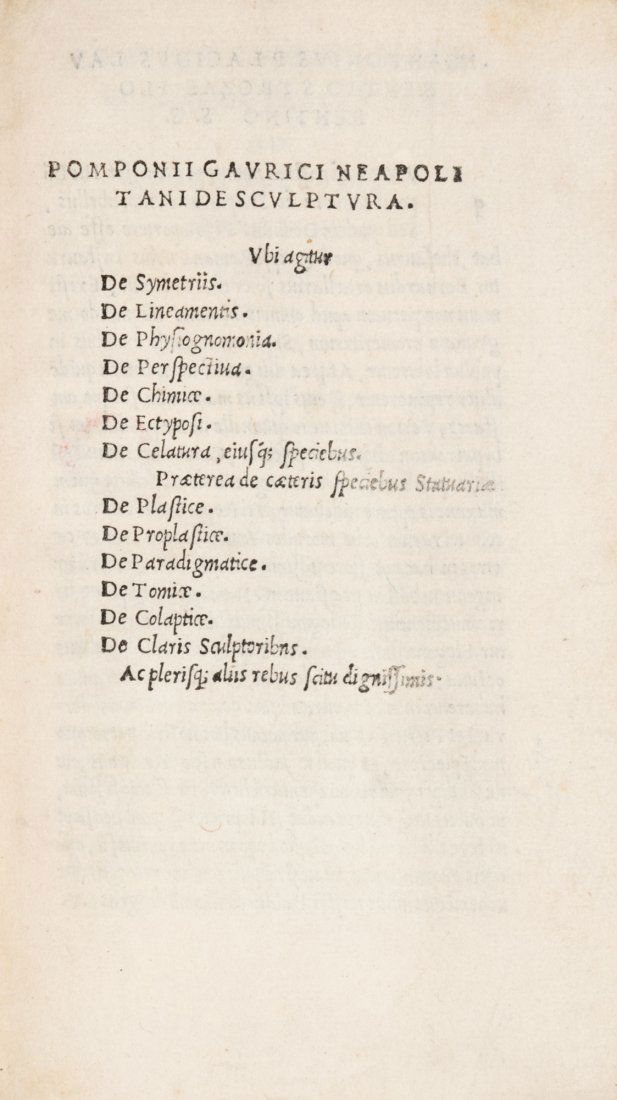 POMPONII GAVRICI NEAPOLI
TANI DE SCVLPTVRA.
Vbi agitur
De Symetriis.
De Lineamentis.
De Physiognomonia.
De Perspectiua.
De Chimicæ.
De Ectyposi.
De Celatura, eiusq́; speciebus.
Præterea de cæteris speciebus Statuariæ
De Plastice.
De Proplasticæ.
De Paradigmatice.
De Tomicæ.
De Colapticæ.
De Claris Sculptoribns.
Ac plerisq́; aliis rebus scitu dignissimis.